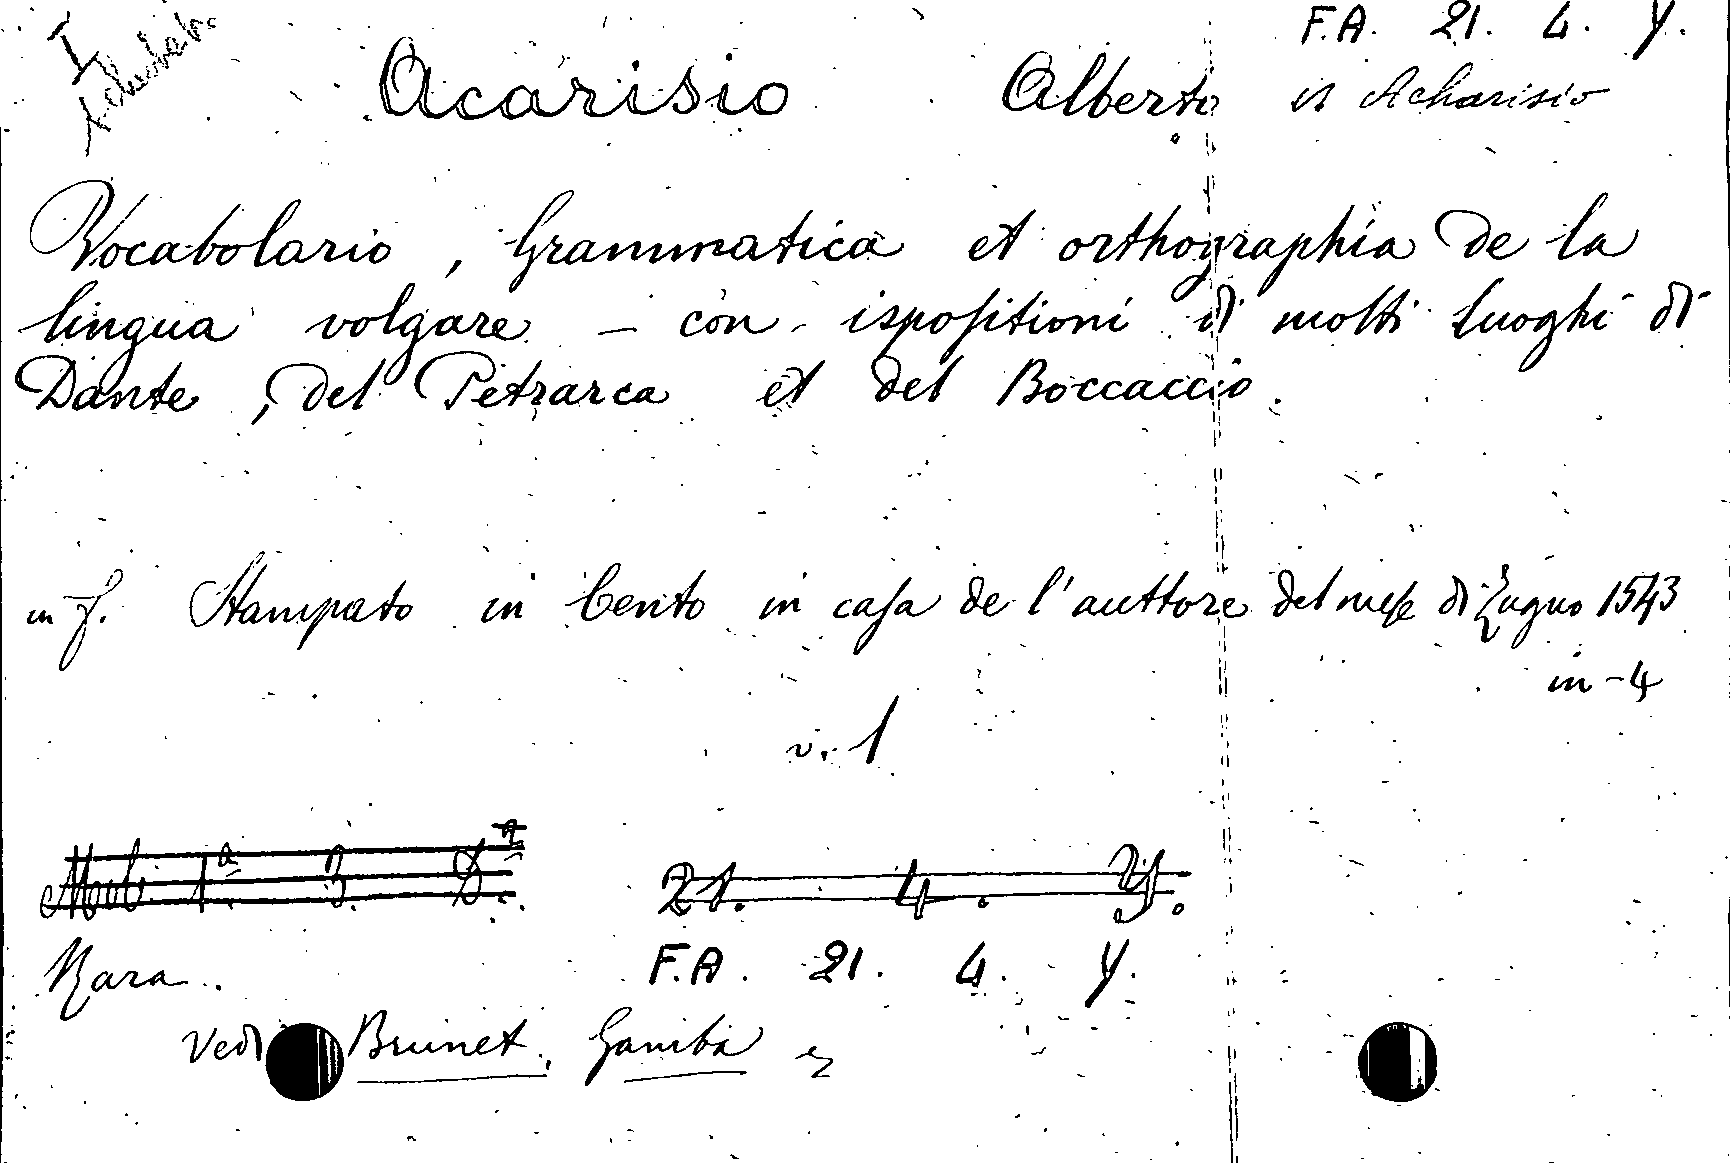 F.A. 21. 4. Y.
I
Acarisio Alberto et Acharisio
Vocabolario, Grammatica et orthographia de la
lingua volgare – con ispositioni di molti luoghi di
Dante, del Petrarca et del Boccaccio.
in f. Stampato in Cento in casa de l'auttore del mese di Zugno 1543
in-4
v. 1
Mob. 1ª 3. 21. 4. Y.
Rara. F.A. 21. 4. Y.
Vedi Brunet, Gamba